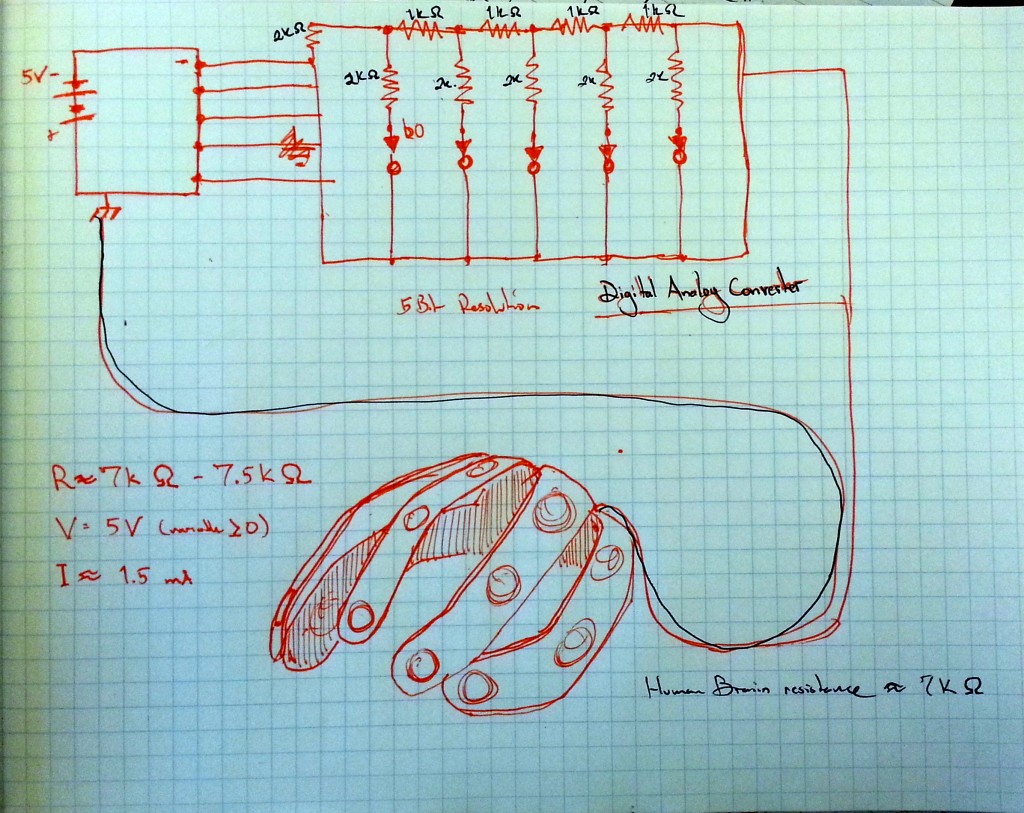 2kΩ
1kΩ
1kΩ
1kΩ
1kΩ
5V -
+
-
2kΩ
2k
2k
2k
2k
b0
5 Bit Resolution
Digital Analog Converter
R≈7kΩ - 7.5kΩ
V= 5V (variable ≥0)
I ≈ 1.5 mA
Human Brain resistance ≈ 7KΩ